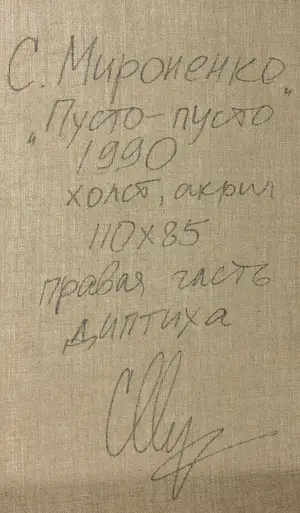 С. Мироненко
„Пусто-пусто"
1990
холст, акрил
110х85
правая часть
диптиха